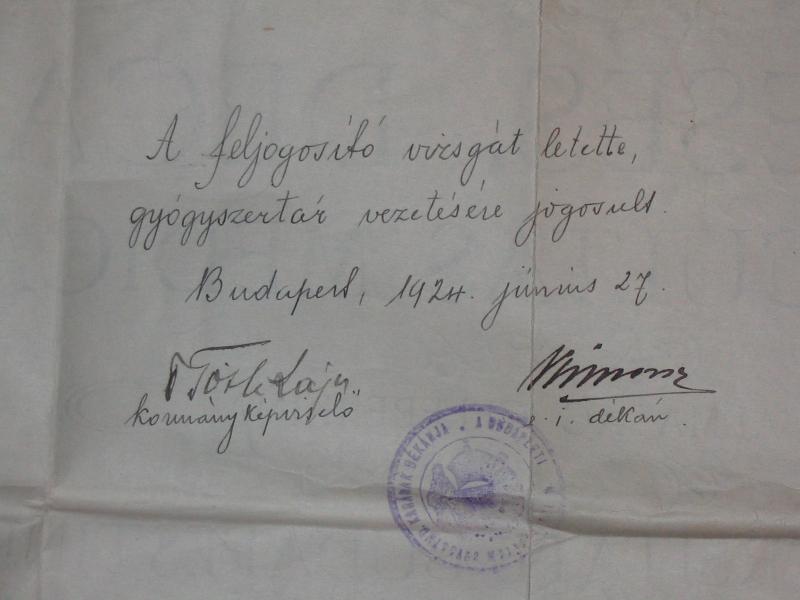 A feljogosító vizsgát letette,
gyógyszertár vezetésére jogosult.
Budapest, 1924. június 27.
Tóth Lajos
kormányképviselő
e. i. dékán.
KARÁNAK DÉKÁNJA • A BUDAPESTI